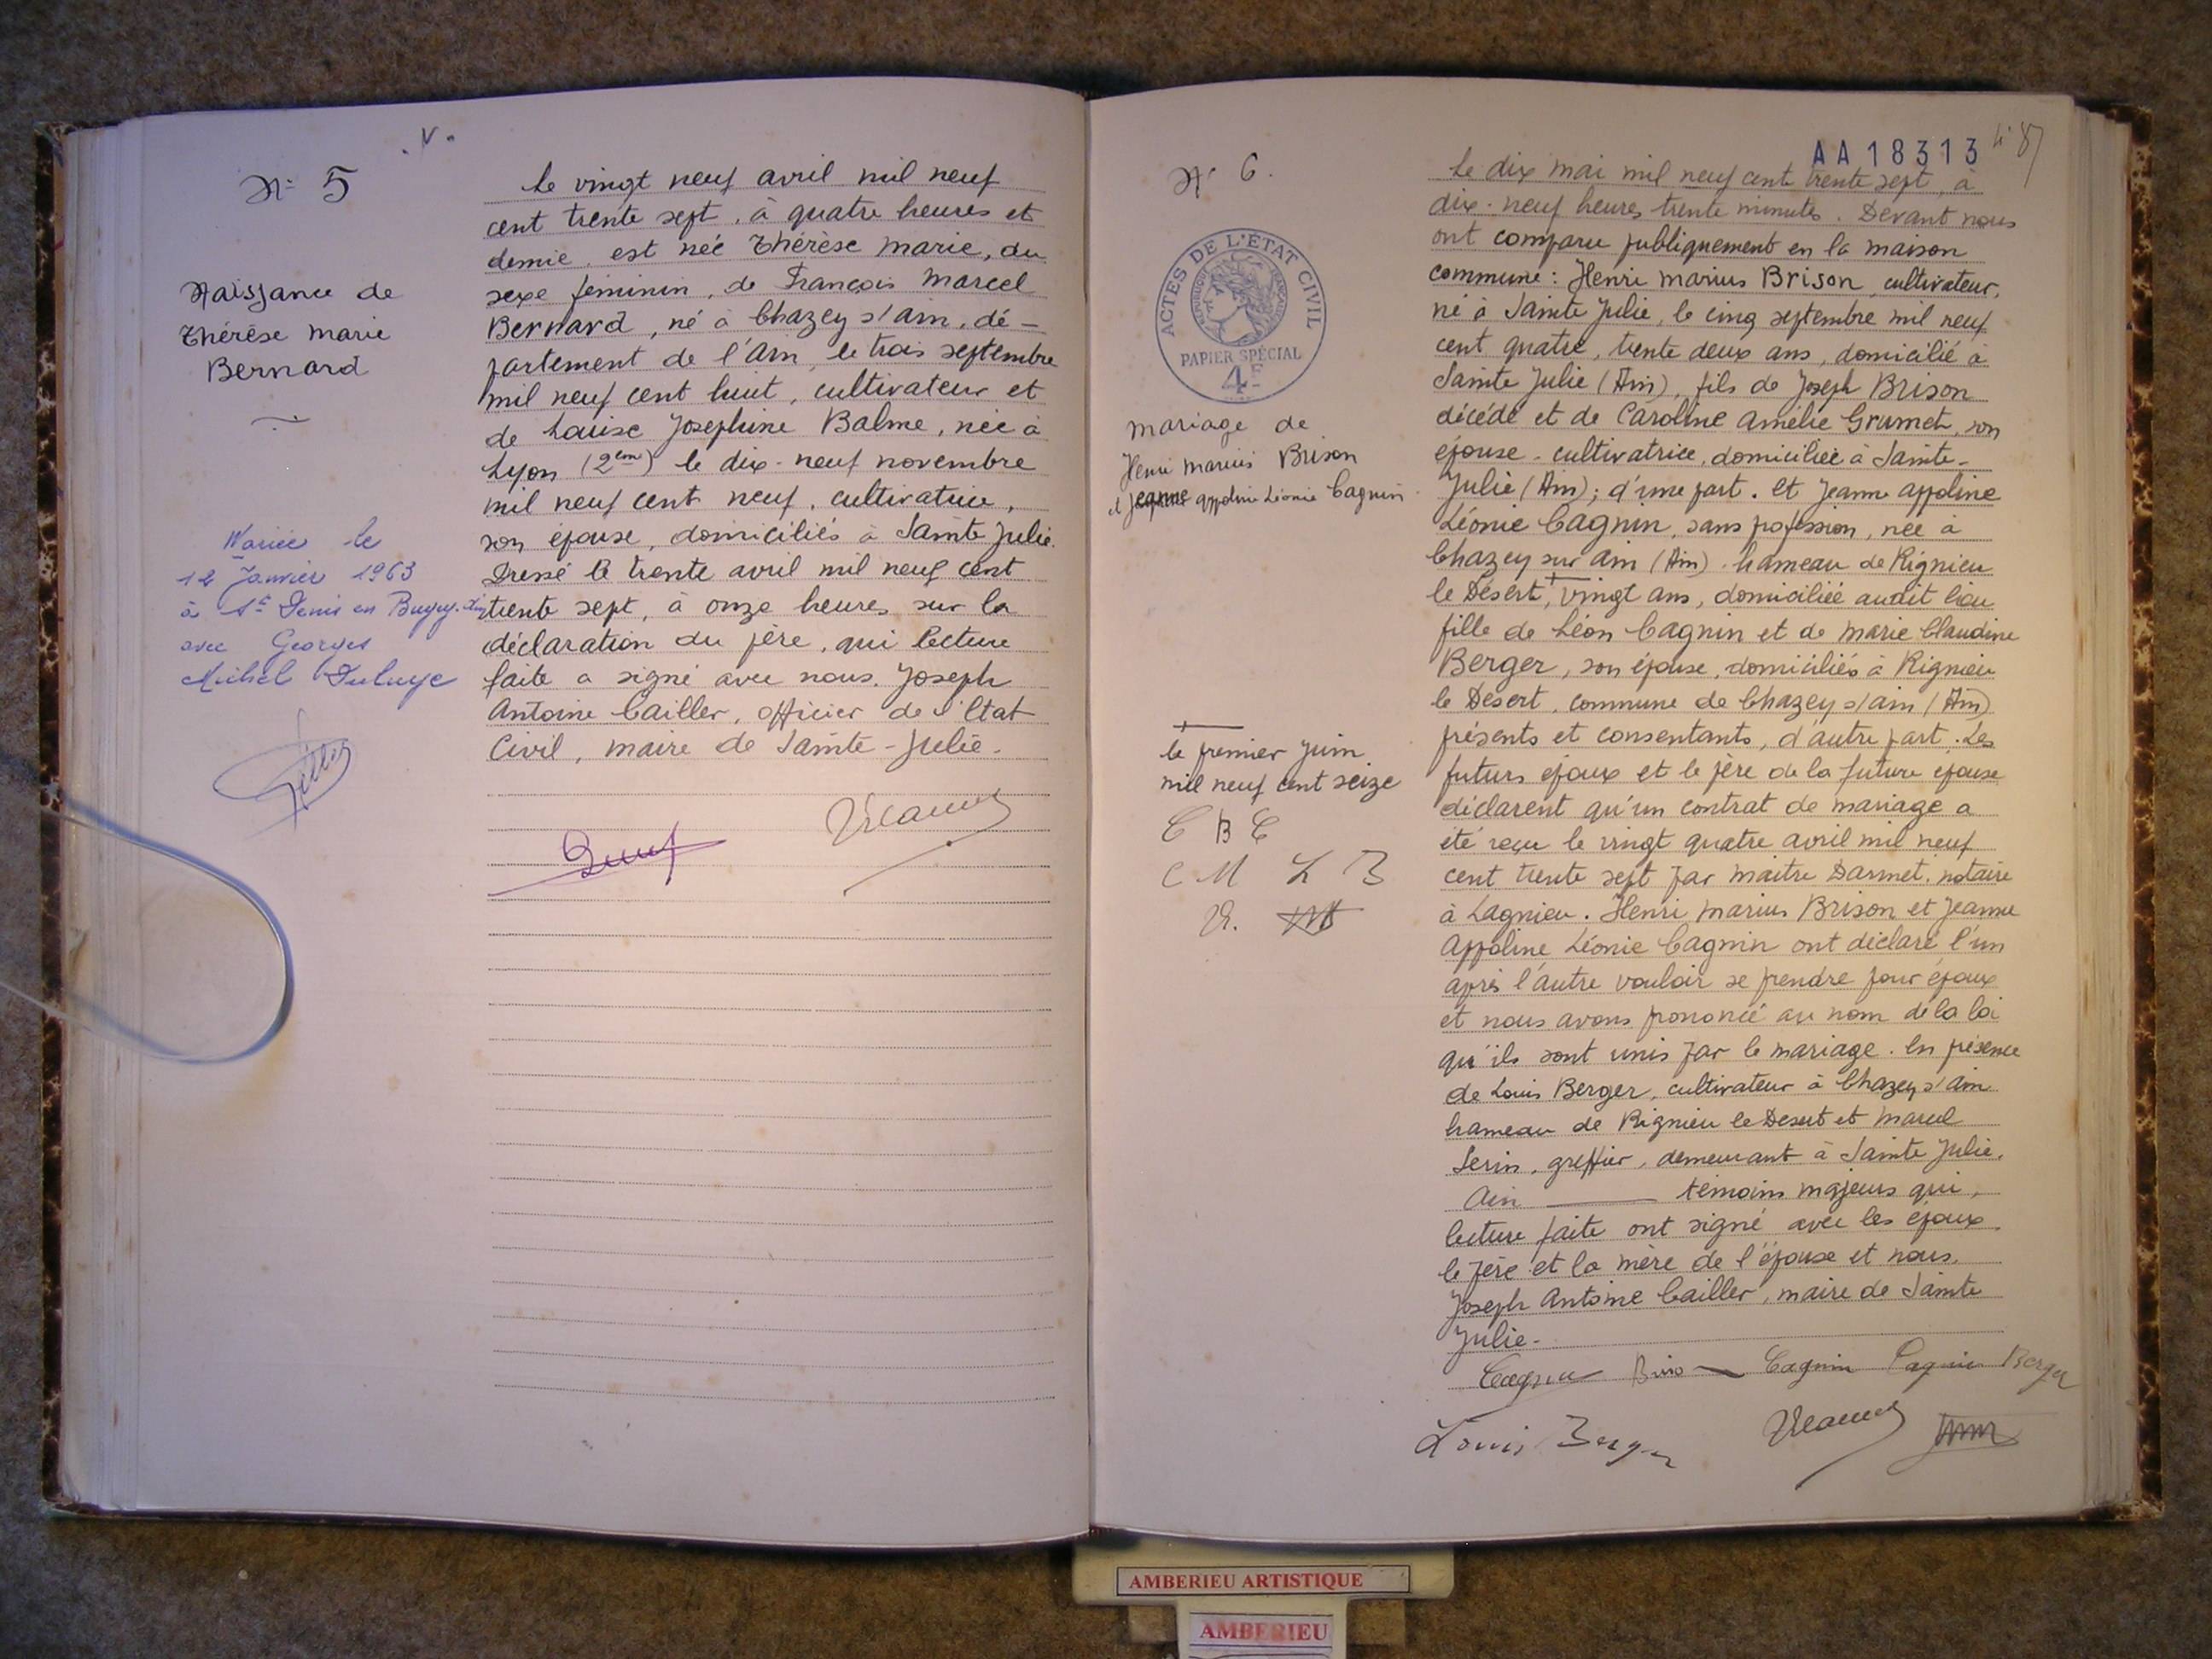 N° 5
Naissance de
Thérèse Marie
Bernard
Mariée le
12 Janvier 1963
à St Denis en Bugey. Ain
avec Georges
Michel
Le vingt neuf avril mil neuf
cent trente sept, à quatre heures et
demie, est née Thérèse Marie, du
sexe féminin, de François Marcel
Bernard, né à Chazey s/ain, dé-
partement de l'Ain, le trois septembre
mil neuf cent huit, cultivateur et
de Louise Josephine Balme, née à
Lyon (2em) le dix-neuf novembre
mil neuf cent neuf, cultivatrice,
son épouse, domiciliés à Sainte Julie.
Dressé le trente avril mil neuf cent
trente sept, à onze heures sur la
déclaration du père, qui lecture
faite a signé avec nous, Joseph
Antoine Cailler, officier de l'Etat
Civil, maire de Sainte-Julie.
AA18313
87
N° 6.
ACTES DE L'ÉTAT CIVIL
RÉPUBLIQUE FRANÇAISE
PAPIER SPÉCIAL
4F
Mariage de
Henri Marius Brison
et Jeanne Appoline Léonie Cagnin
le premier Juin
mil neuf cent seize
C B C
C M L B
Le dix mai mil neuf cent trente sept, à
dix-neuf heures trente minutes. Devant nous
ont comparu publiquement en la maison
commune: Henri Marius Brison, cultivateur,
né à Sainte Julie, le cinq septembre mil neuf
cent quatre, trente deux ans, domicilié à
Sainte Julie (Ain), fils de Joseph Brison
décédé et de Caroline Amélie Grumet, son
épouse - cultivatrice, domiciliée à Sainte-
Julie (Ain); d'une part. Et Jeanne Appoline
Léonie Cagnin, sans profession, née à
Chazey sur Ain (Ain) hameau de Rignieu
le Désert, vingt ans, domiciliée audit lieu
fille de Léon Cagnin et de Marie Claudine
Berger, son épouse, domiciliés à Rignieu
le Désert, commune de Chazey s/ain (Ain)
présents et consentants, d'autre part. Les
futurs époux et le père de la future épouse
déclarent qu'un contrat de mariage a
été reçu le vingt quatre avril mil neuf
cent trente sept par maître Darmet, notaire
à Lagnieu. Henri Marius Brison et Jeanne
Appoline Léonie Cagnin ont déclaré l'un
après l'autre vouloir se prendre pour époux
et nous avons prononcé au nom de la loi
qu'ils sont unis par le mariage. En présence
de Louis Berger, cultivateur à Chazey s/ain
hameau de Rignieu le Desert et Marcel
Serin, greffier, demeurant à Sainte Julie,
Ain ——— témoins majeurs qui,
lecture faite ont signé avec les époux,
le père et la mère de l'épouse et nous,
Joseph Antoine Cailler, maire de Sainte
Julie.
Cagnin Cagnin Berger
Louis Berger
AMBERIEU ARTISTIQUE
AMBERIEU